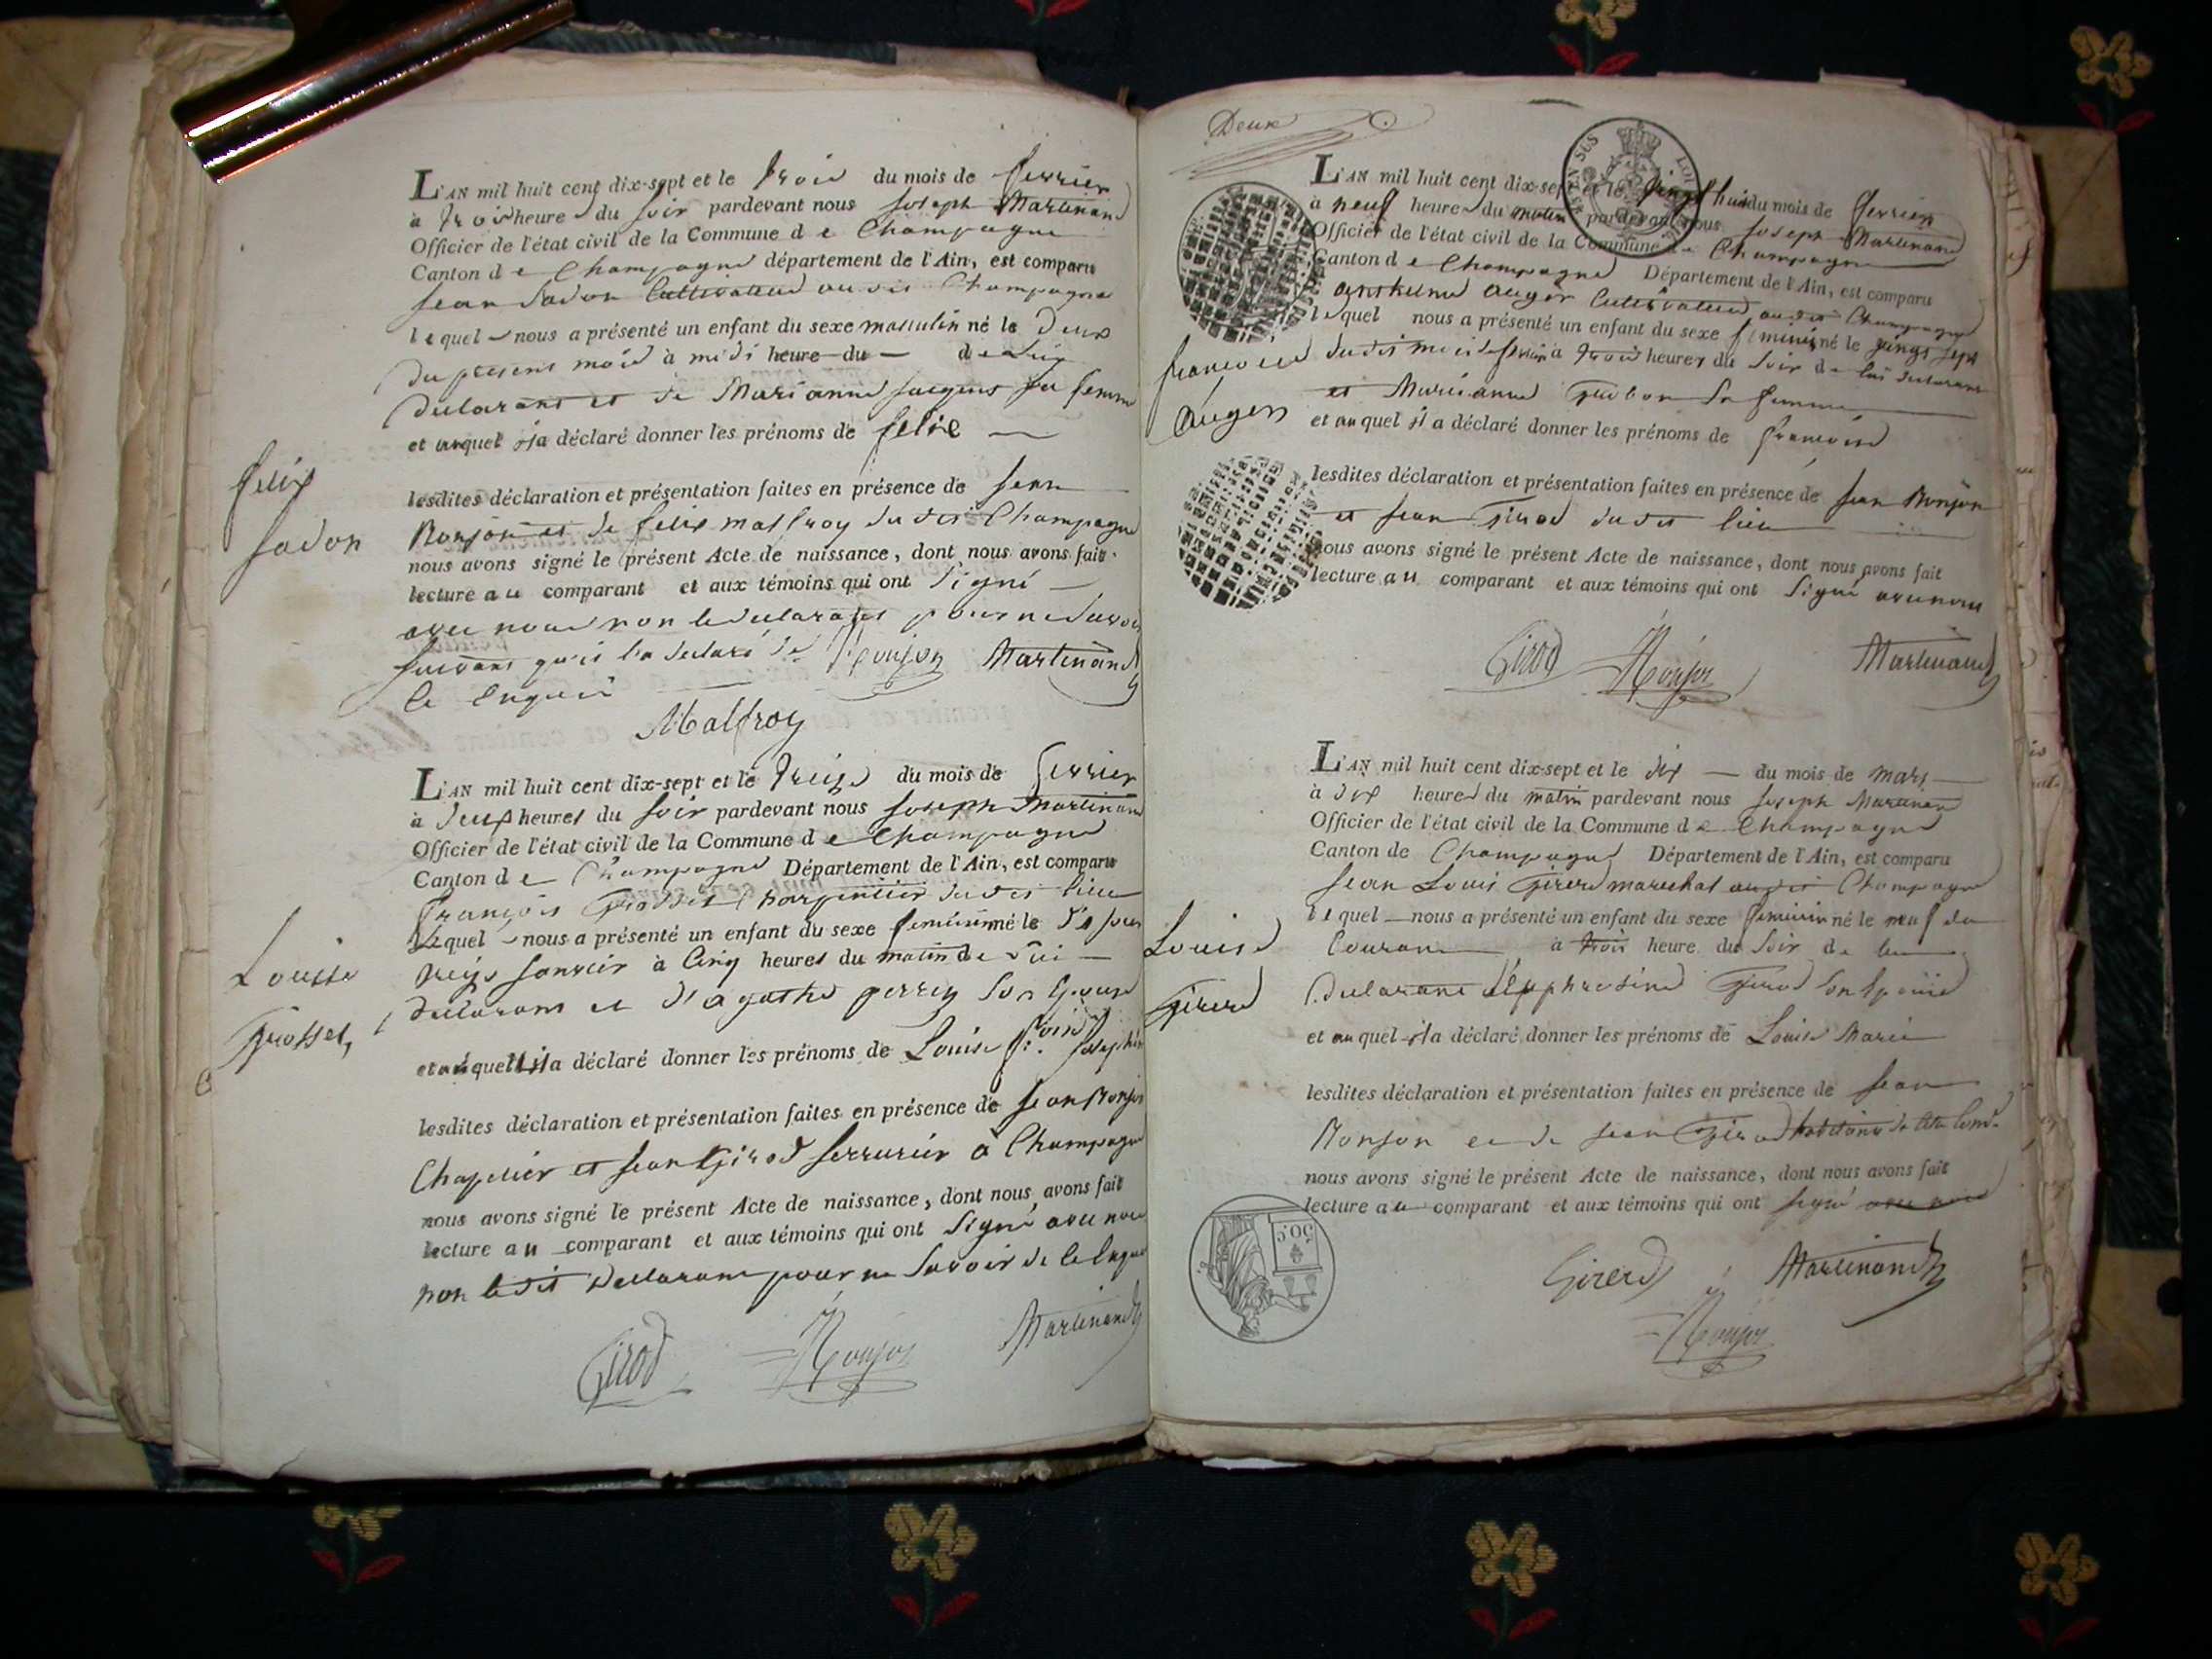 L'AN mil huit cent dix-sept et le trois du mois de fevrier
à trois heures du soir pardevant nous joseph Martinand
Officier de l'état civil de la Commune de Champagne
Canton de Champagne département de l'Ain, est comparu
jean jadon Cultivateur audit Champagne
lequel nous a présenté un enfant du sexe masculin né le deux
du present mois à midi heure du de lui
declarant et de Marianne jaques sa femme
et auquel il a déclaré donner les prénoms de felix
felix
jadon
lesdites déclaration et présentation faites en présence de jean
Monjon et de felix malfroy dudit Champagne
nous avons signé le présent Acte de naissance, dont nous avons fait
lecture au comparant et aux témoins qui ont signé
avec nous non le declarant pour ne savoir
suivant qu'il l'a declaré de
ce enquis
Monjon Martinand
Malfroy
L'AN mil huit cent dix-sept et le treize du mois de fevrier
à deux heures du soir pardevant nous joseph Martinand
Officier de l'état civil de la Commune de Champagne
Canton de Champagne Département de l'Ain, est comparu
françois Grosset charpentier dudit lieu
Lequel nous a présenté un enfant du sexe feminin né le dit jour
treize à Cinq heures du matin de lui
declarant et d'agathe perret son Epouse
et auquel il a déclaré donner les prénoms de Louise joseph
Louise
Grosset,
lesdites déclaration et présentation faites en présence de jean Monjon
Chapelier et jean Girod serrurier à Champagne
nous avons signé le présent Acte de naissance, dont nous avons fait
lecture au comparant et aux témoins qui ont signé avec nous
non ledit declarant pour ne savoir de ce enquis
Girod Monjon Martinand
Deux
L'AN mil huit cent dix-sept et le vingt huit du mois de fevrier
à neuf heures du matin pardevant nous joseph Martinand
Officier de l'état civil de la Commune de Champagne
Canton de Champagne Département de l'Ain, est comparu
anthelme auger Cultivateur audit Champagne
lequel nous a présenté un enfant du sexe feminin né le vingt sept
dudit mois de fevrier à trois heures du soir de lui declarant
et Marianne sa femme
et auquel il a déclaré donner les prénoms de françoise
françoise
auger
lesdites déclaration et présentation faites en présence de jean Monjon
et jean Girod dudit lieu
nous avons signé le présent Acte de naissance, dont nous avons fait
lecture au comparant et aux témoins qui ont signé avec nous
Girod Monjon Martinand
L'AN mil huit cent dix-sept et le dix du mois de mars
à dix heures du matin pardevant nous joseph Martinand
Officier de l'état civil de la Commune de Champagne
Canton de Champagne Département de l'Ain, est comparu
jean Louis Girerd marechal audit Champagne
lequel nous a présenté un enfant du sexe feminin né le neuf du
Courant à trois heure du soir de lui
declarant d'Euphrosine Girod son Epouse
et auquel il a déclaré donner les prénoms de Louise Marie
Louise
Girerd
lesdites déclaration et présentation faites en présence de jean
Monjon et de jean Girod habitants de
nous avons signé le présent Acte de naissance, dont nous avons fait
lecture au comparant et aux témoins qui ont signé avec nous
Girerd Martinand
Monjon